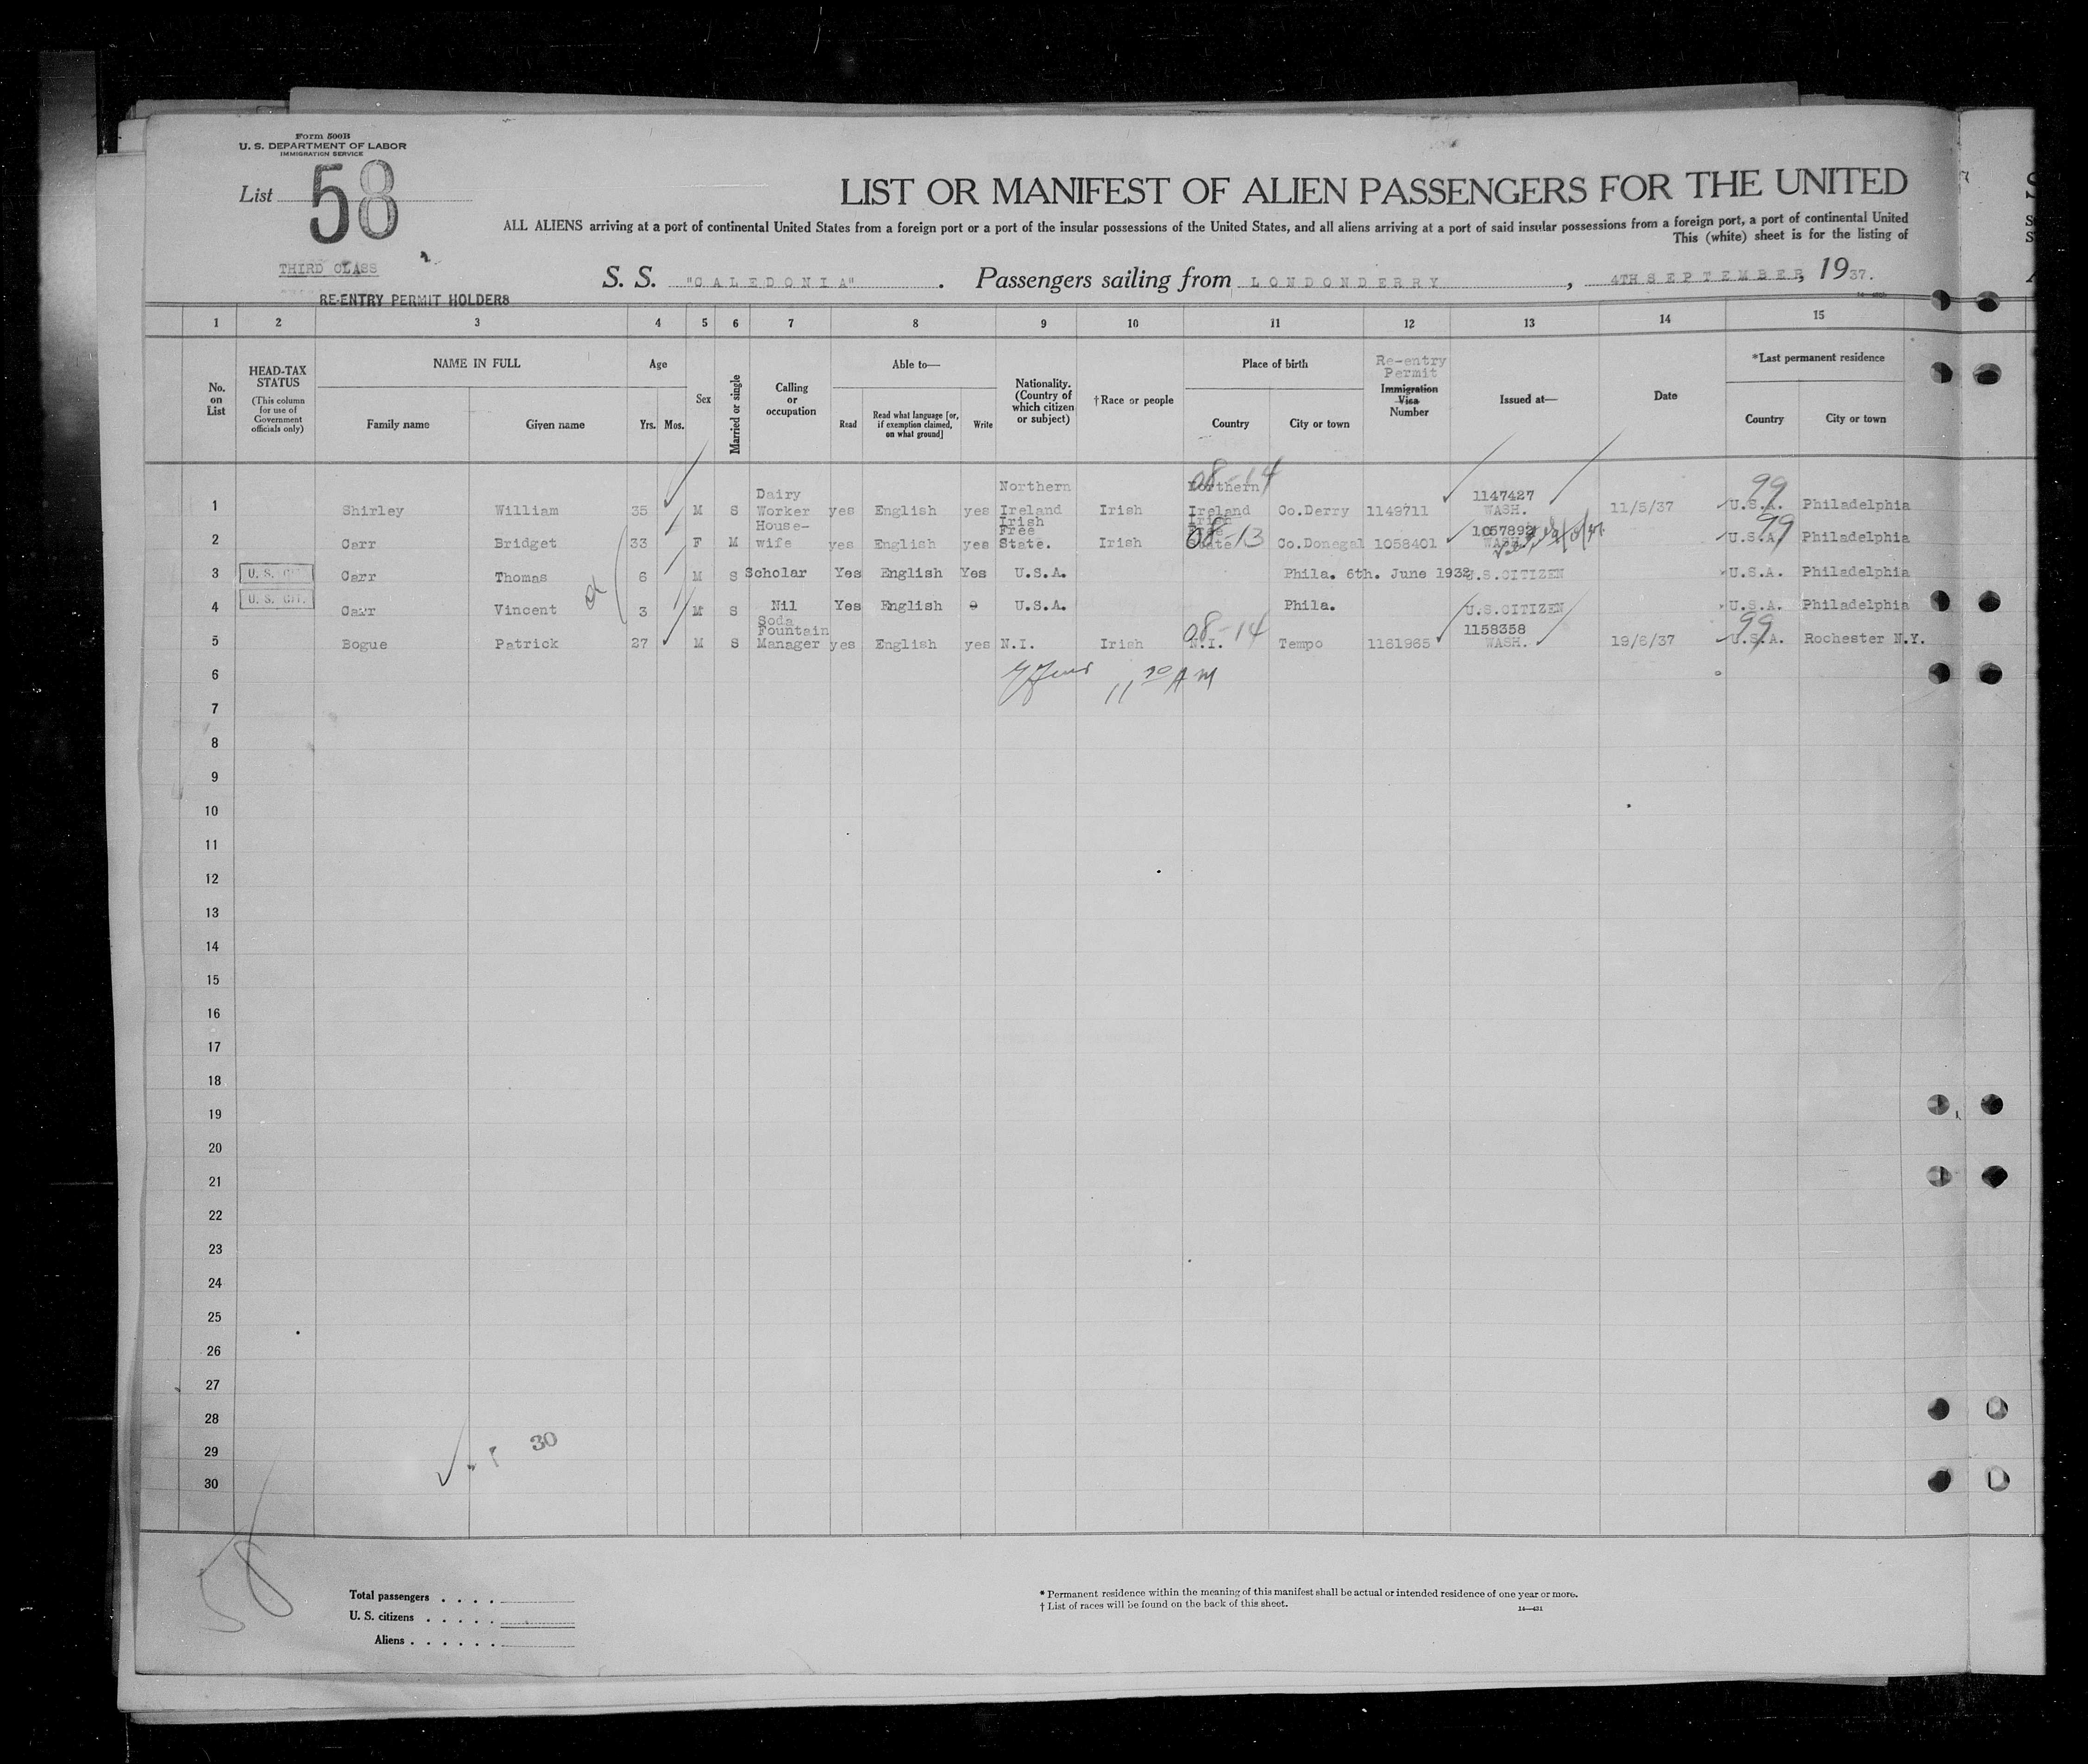 Form 500B
U. S. DEPARTMENT OF LABOR
IMMIGRATION SERVICE
List 58
LIST OR MANIFEST OF ALIEN PASSENGERS FOR THE UNITED
ALL ALIENS arriving at a port of continental United States from a foreign port or a port of the insular possessions of the United States, and all aliens arriving at a port of said insular possessions from a foreign port, a port of continental United
This (white) sheet is for the listing of
THIRD CLASS
S. S. "CALEDONIA" . Passengers sailing from LONDONDERRY , 4TH SEPTEMBER, 1937.
RE-ENTRY PERMIT HOLDERS
1 2 3 4 5 6 7 8 9 10 11 12 13 14 15
No. on List
HEAD-TAX STATUS (This column for use of Government officials only)
NAME IN FULL Family name Given name
Age Yrs. Mos.
Sex
Married or single
Calling or occupation
Able to— Read Read what language [or, if exemption claimed, on what ground] Write
Nationality. (Country of which citizen or subject)
†Race or people
Place of birth Country City or town
Re-entry Permit Immigration Visa Number
Issued at—
Date
*Last permanent residence Country City or town
1 Shirley William 35 M S Dairy Worker yes English yes Northern Ireland Irish Northern Ireland 08-14 Co.Derry 1149711 1147427 WASH. 11/5/37 U.S.A. 99 Philadelphia
2 Carr Bridget 33 F M House-wife yes English yes Irish Free State. Irish Irish Free State 08-13 Co.Donegal 1058401 1057892 WASH. U.S.A. 99 Philadelphia
3 U. S. CIT. Carr Thomas 6 M S Scholar Yes English Yes U.S.A. Phila. 6th. June 1932 U.S.CITIZEN U.S.A. Philadelphia
4 U. S. CIT. Carr Vincent 3 M S Nil Yes English U.S.A. Phila. U.S.CITIZEN U.S.A. Philadelphia
5 Bogue Patrick 27 M S Soda Fountain Manager yes English yes N.I. Irish N.I. 08-14 Tempo 1161965 1158358 WASH. 19/6/37 U.S.A. 99 Rochester N.Y.
6 11 30 AM
7
8
9
10
11
12
13
14
15
16
17
18
19
20
21
22
23
24
25
26
27
28
29 30
30
58
Total passengers . . . .
U. S. citizens . . . . .
Aliens . . . . . .
* Permanent residence within the meaning of this manifest shall be actual or intended residence of one year or more.
† List of races will be found on the back of this sheet.
14—431